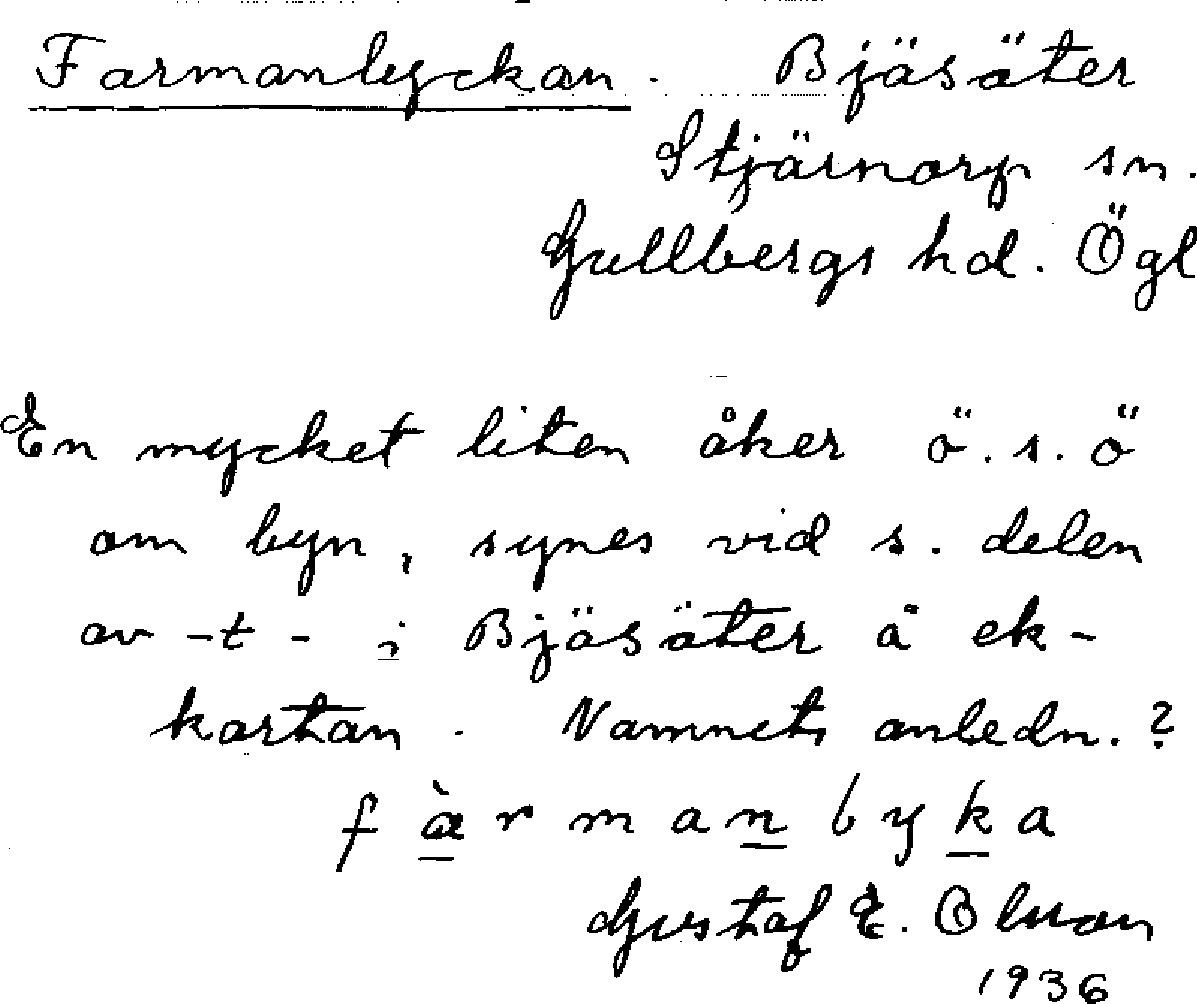 Farmanlyckan. Bjäsäter
Stjärnorp sn.
Gullbergs hd. Ögl
En mycket liten åker ö.s.ö
om byn, synes vid s. delen
av -t- i Bjäsäter å ek-
kartan. Namnets anledn.?
f à r m a n l y k a
Gustaf E. Olsson
1936